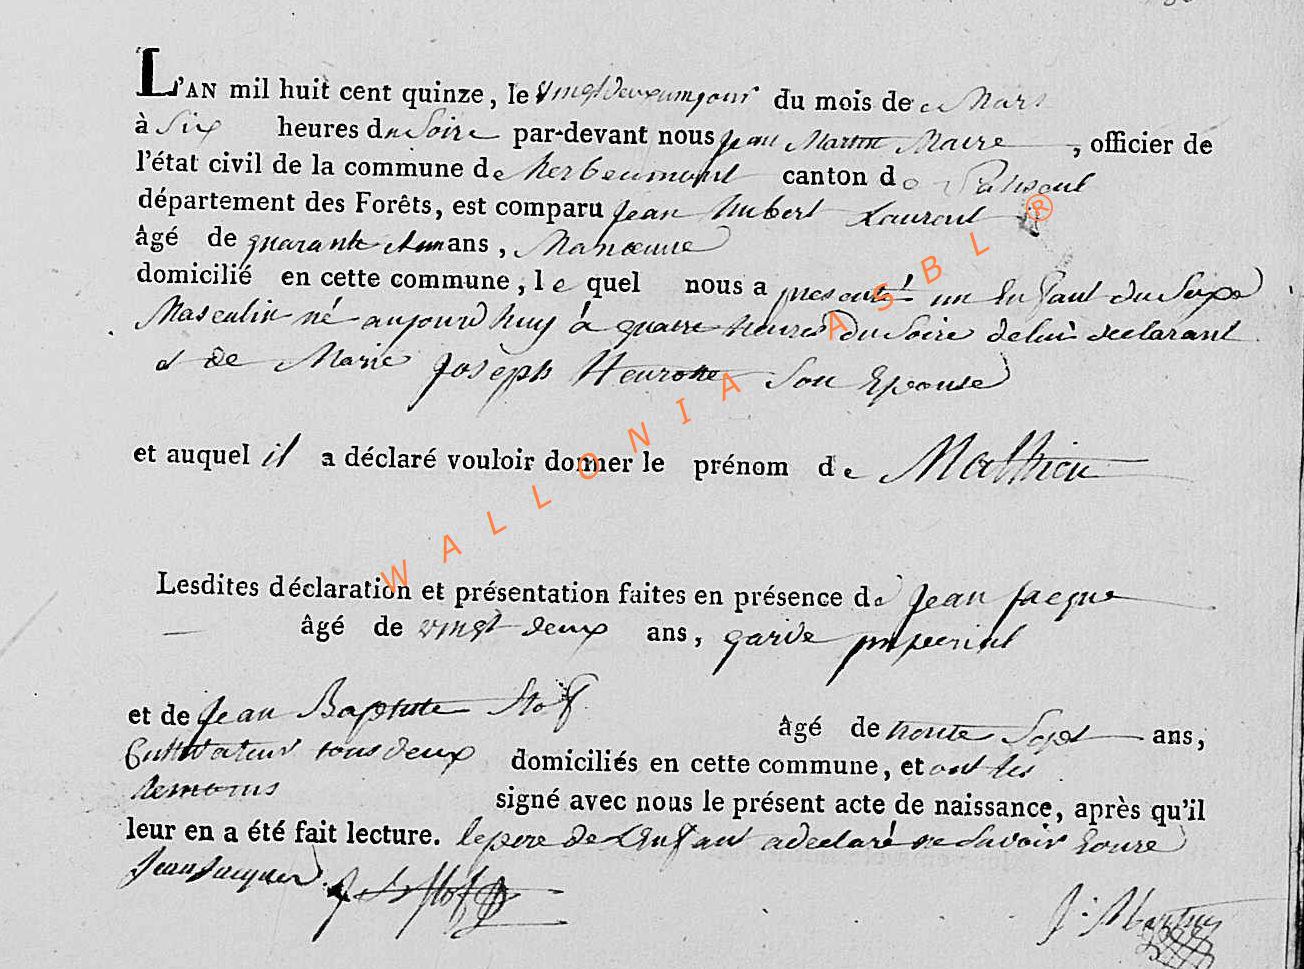 L'AN mil huit cent quinze, le vingtdeuxiemjour du mois de Mars
à Six heures du Soire par-devant nous Jean Martin Maire, officier de
l'état civil de la commune de herbeumont canton de
département des Forêts, est comparu Jean hubert Laurent
âgé de quarante et un ans, Manœuvre
domicilié en cette commune, le quel nous a presenté un Enfant du Sexe
Masculin né aujourd huy á quatre heures du Soire de lui declarant
et de Marie Joseph son Epouse
et auquel il a déclaré vouloir donner le prénom de Mathieu
Lesdites déclaration et présentation faites en présence de Jean Jacque
âgé de vingt deux ans, garde imperial
et de Jean Baptiste Stof âgé de trente Sept ans,
Cultivateur tous deux domiciliés en cette commune, et ont les
temoins signé avec nous le présent acte de naissance, après qu'il
leur en a été fait lecture. le pere de L'enfant a declaré ne savoir Ecrire
Jean Jacques J. B. Stof J. Martin
WALLONIA ASBL ®